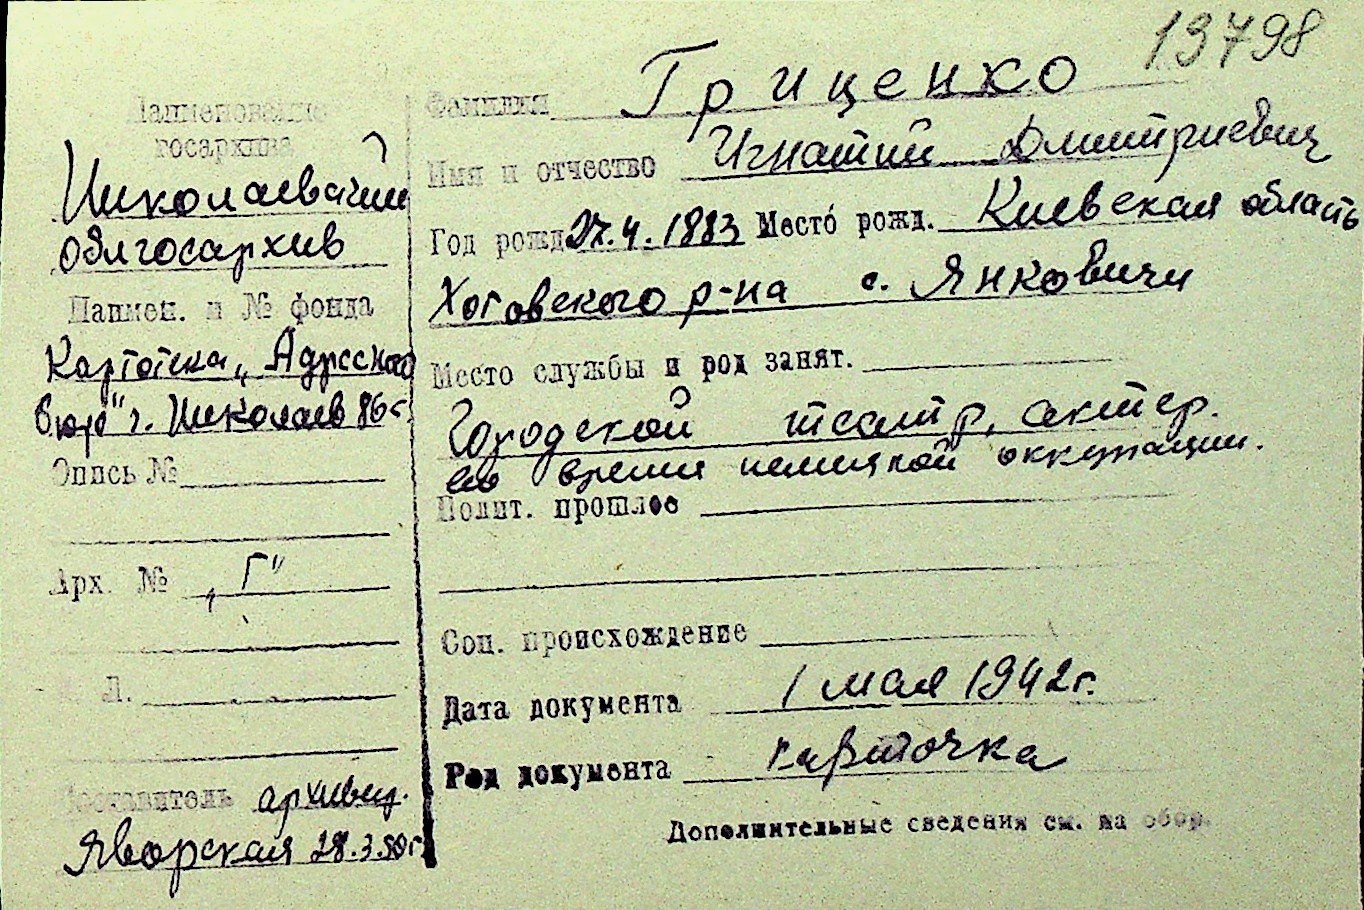 13798
Наименование
госархива
Николаевский
облгосархив
Наимен. и № фонда
Картотека „Адресного
бюро" г. Николаев
Опись №
Арх. № „Г"
Л.
Составитель архивист.
Яворская 28.3.50г.
Фамилия Гриценко
Имя и отчество Игнатий Дмитриевич
Год рожд 27.4.1883 Место рожд. Киевская область
р-на с. Янковичи
Место службы и род занят.
Городской театр, актер.
во время немецкой оккупации.
Полит. прошлое
Соц. происхождение
Дата документа 1 мая 1942г.
Род документа карточка
Дополнительные сведения см. на обор.